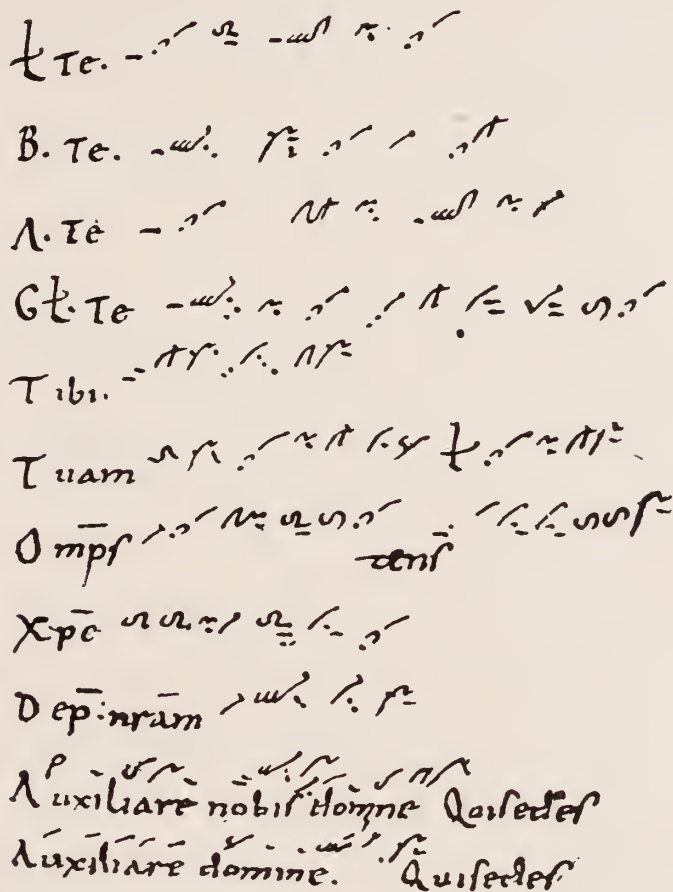 ł Te.
B. Te.
A. Te
Gł. Te
Tibi.
Tuam ł
Omp̄ſ
Xp̄e
Dep̄: nr̄am
Auxiliare nobiſ domne Quiſedeſ
Auxiliare domine. Quiſedeſ